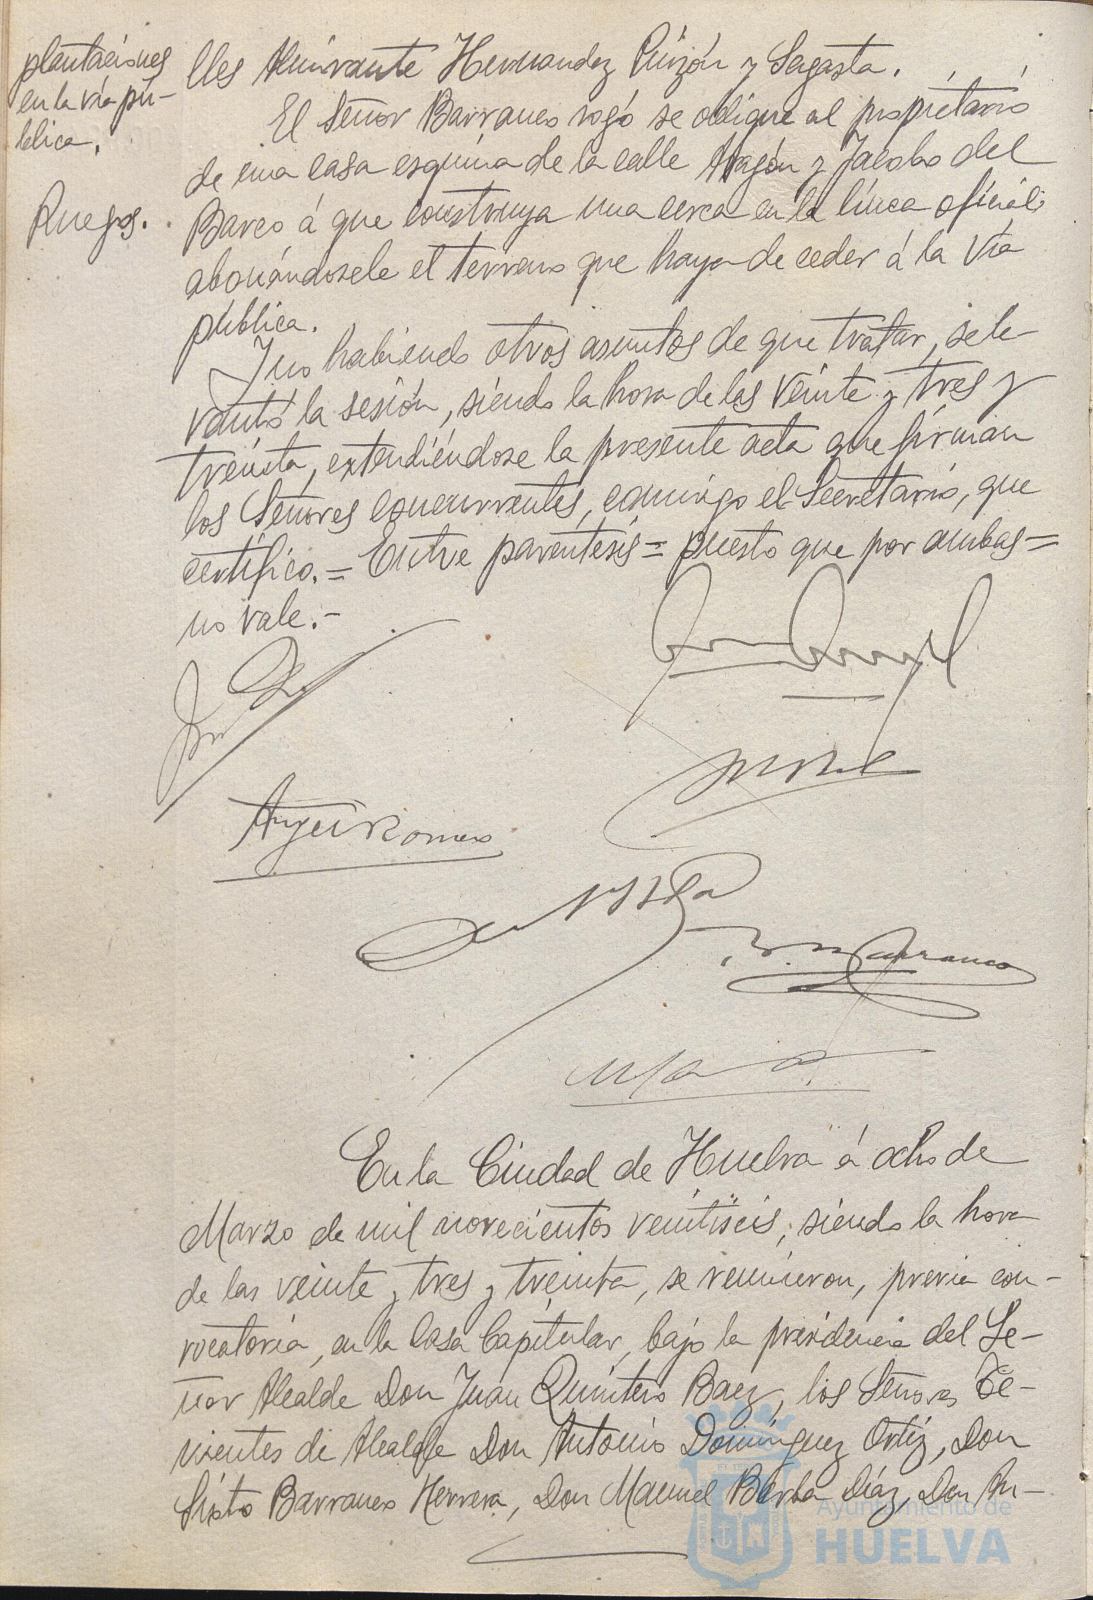 plantaciones
en la vía pú-
blica.
Ruegos.
lles Almirante Hernandez Pinzón y Sagasta.
El Señor Barranco rogó se oblígue al propietario
de una casa esquina de la calle Aragón y Jacobo del
Barco á que construya una cerca en la línea oficial
abonándosele el terreno que haya de ceder á la Vía
pública.
Y no habiendo otros asuntos de que tratar, se le-
vantó la sesión, siendo la hora de las veinte y tres y
treinta, extendiéndose la presente acta que firman
los Señores concurrentes, conmigo el Secretario, que
certifico.= Entre parentesis = puesto que por ambas =
no vale.-
Angel Romero
Barranco
En la Ciudad de Huelva á ocho de
Marzo de mil novecientos veintiseis, siendo la hora
de las veinte y tres y treinta, se reunieron, previa con-
vocatoria, en la Casa Capitular, bajo la presidencia del Se-
ñor Alcalde Don Juan Quintero Baez, los Señores Te-
nientes de Alcalde Don Antonio Domínguez Ortiz, Don
Sixto Barranco Herrera, Don Manuel Barba Díaz, Don An-
Ayuntamiento de
HUELVA